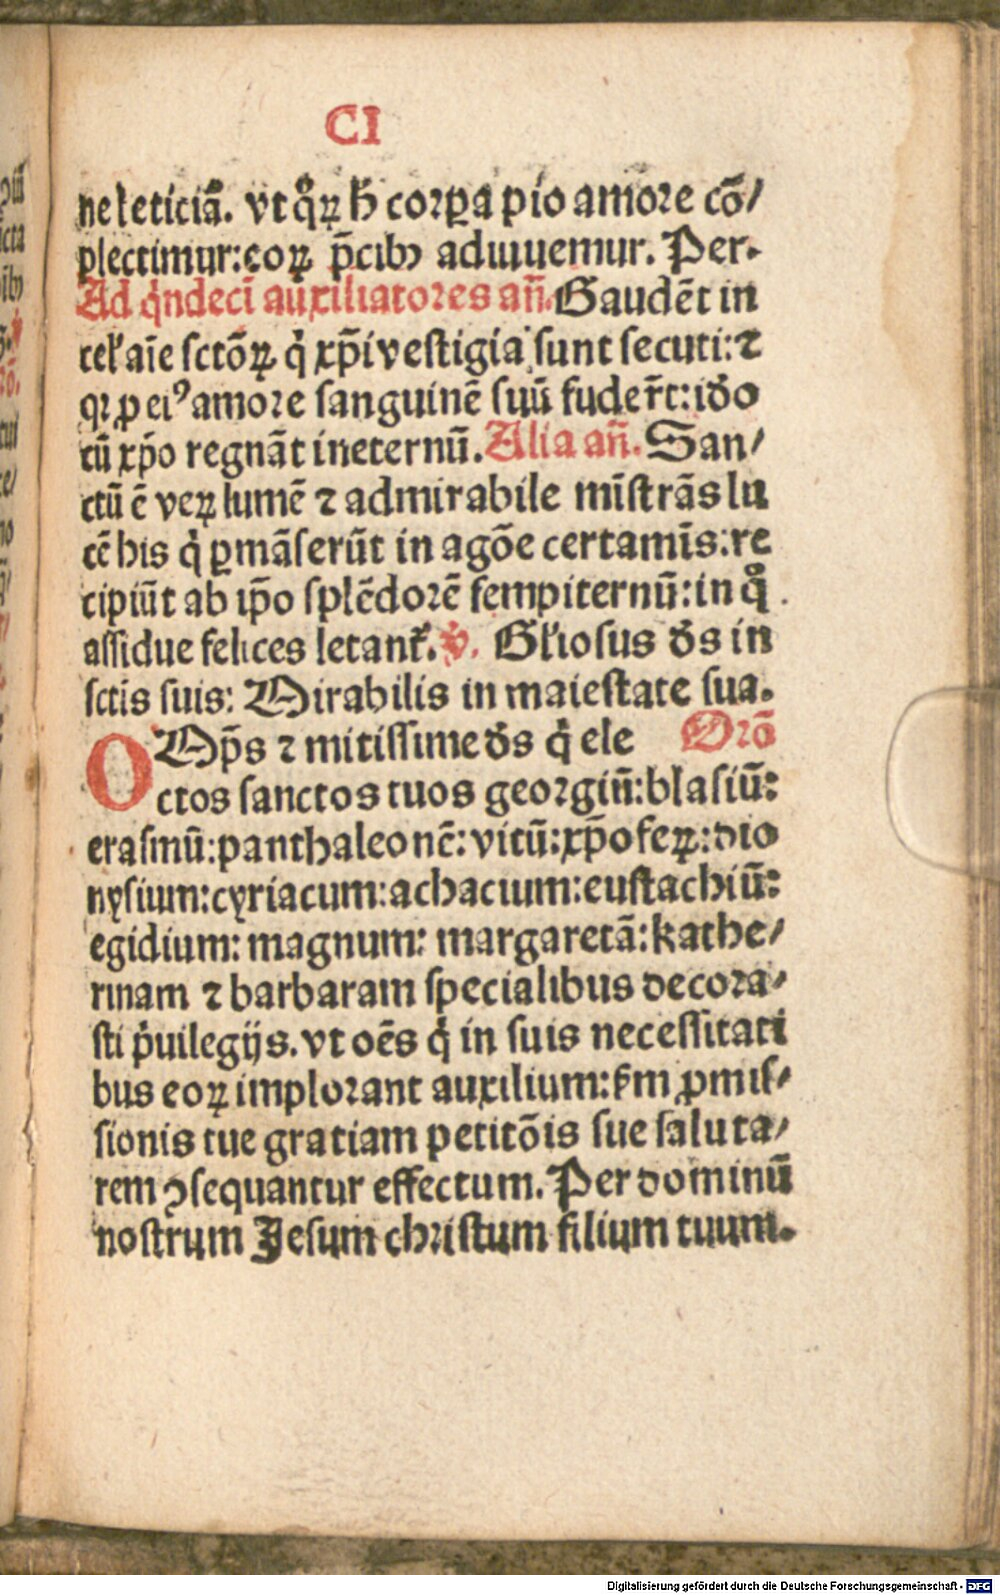 CI
ne leticiā. vt qͦꝝ h̄ corꝑa pio amore cō/
plectimur: eoꝝ p̄cibꝫ adiuuemur. Per.
Ad qͥndecī auxiliatores añ. Gaudēt in
cel' aīe sctōꝝ qͥ xp̄i vestigia sunt secuti: ⁊
qꝛ ꝓ eiꝰ amore sanguinē suū fuder̄t: iđo
cū xp̄o regnāt in eternū. Alia añ. San/
ctū ē veꝝ lumē ⁊ admirabile mīstrās lu
cē his qͥ ꝑmāserūt in agōe certamīs: re
cipiūt ab ip̄o splēdorē sempiternū: in qͦ
assidue felices letant᷑. ℣. Gl'iosus đs in
sctis suis: Mirabilis in maiestate sua.
OMp̄s ⁊ mitissime đs qͥ ele Orō
ctos sanctos tuos georgiū: blasiū:
erasmū: panthaleonē: vitū: xp̄ofeꝝ: dio
nysium: cyriacum: achacium: eustachiū:
egidium: magnum: margaretā: kathe/
rinam ⁊ barbaram specialibus decora/
sti pͥuilegijs. vt oēs qͥ in suis necessitati
bus eoꝝ implorant auxilium: s̄m ꝓmis/
sionis tue gratiam petitōis sue saluta/
rem ꝯsequantur effectum. Per dominū
nostrum Jesum christum filium tuum.
Digitalisierung gefördert durch die Deutsche Forschungsgemeinschaft - DFG